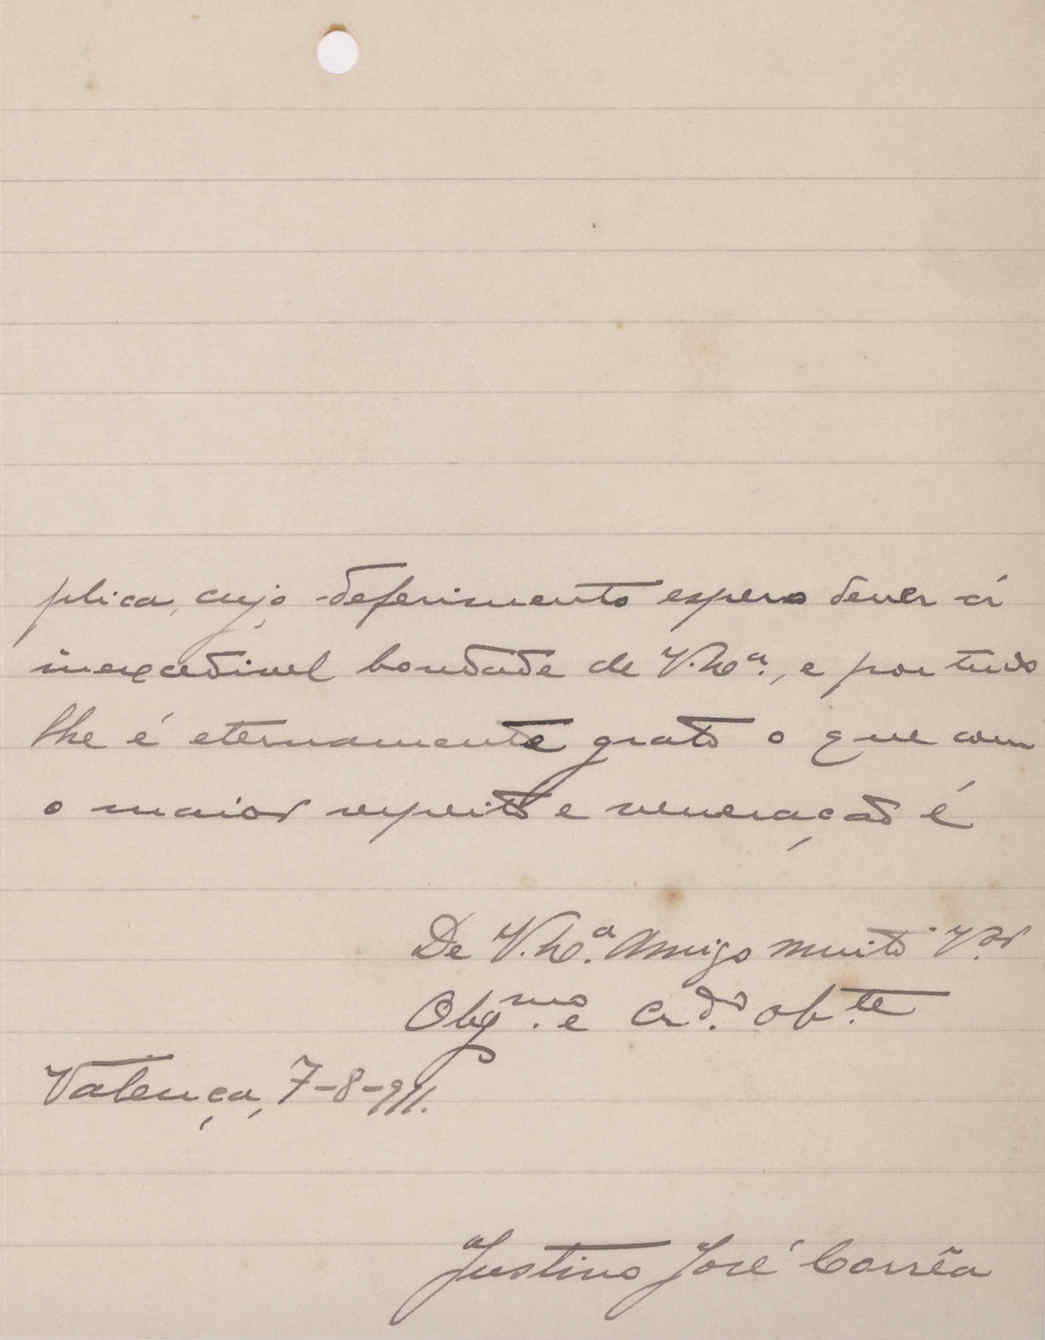 plica, cujo deferimento espero dever á
inexcedivel bondade de V. Exª., e por tudo
lhe é eternamente grato o que com
o maior respeito e veneração é
De V. Exª. Amigo muito V.or
Obgmo. e Crdo. obte
Valença, 7-8-911.
Justino José Corrêa